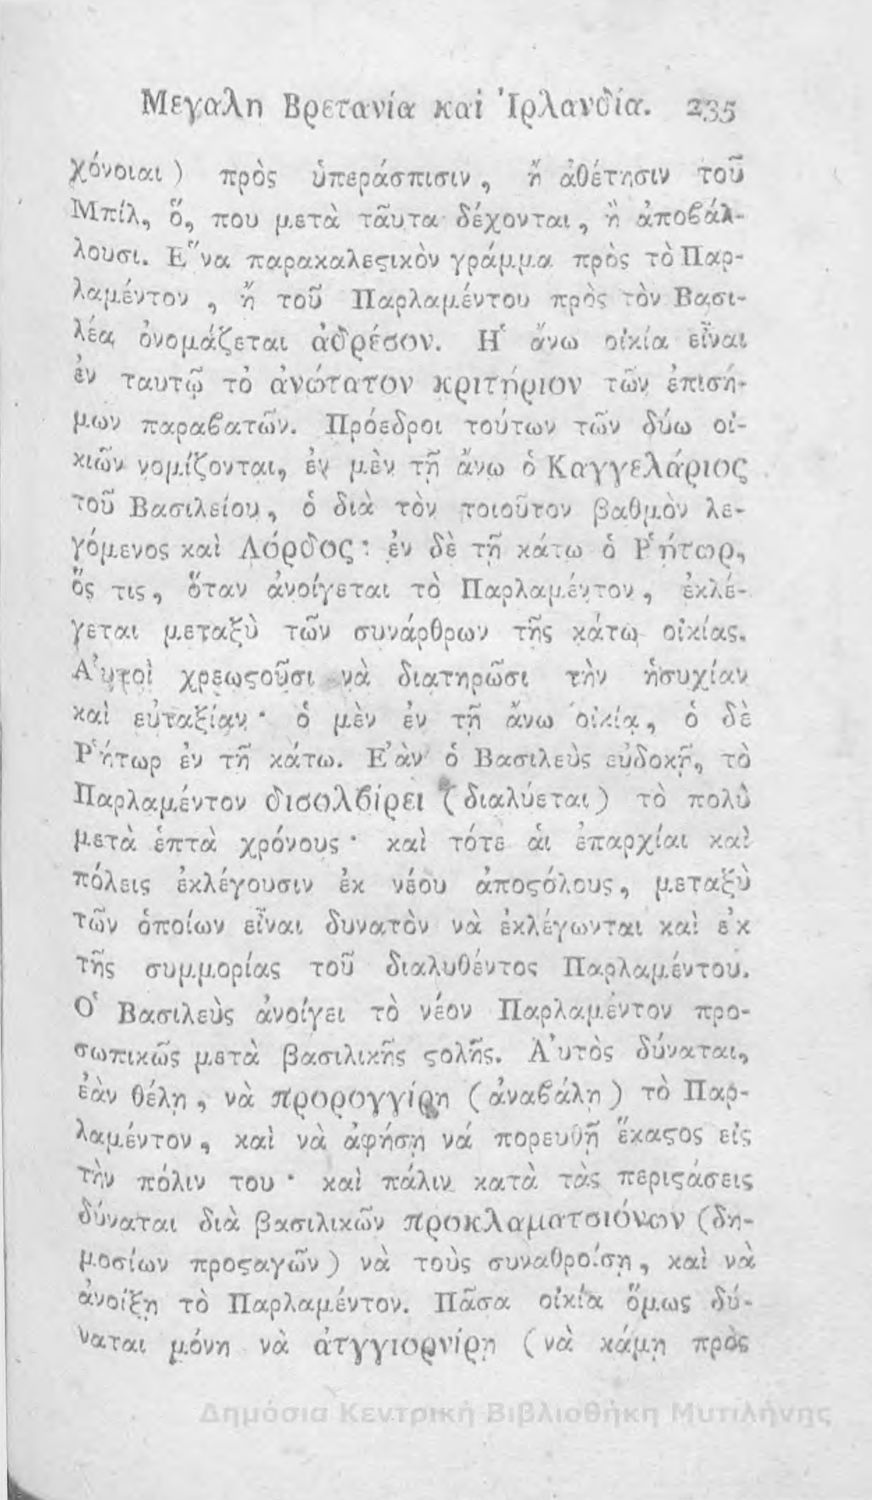 Μεγαλη Βρετανία και Ἰρλανδία. 235
χόνοιαι) πρὸς ὑπεράσπισιν, ἢ ἀθέτησιν τοῦ
Μπίλ, ὅ, που μετὰ ταῦτα δέχονται, ἢ ἀποβάλ-
λουσι. Ἕνα παρακαλεϛικὸν γράμμα πρὸς τὸ Παρ-
λαμέντον, ἢ τοῦ Παρλαμέντου πρὸς τὸν Βασι-
λέα ὀνομάζεται ἀδρέσον. Ἡ ἄνω οἰκία εἶναι
ἐν ταυτῷ τὸ ἀνώτατον κριτήριον τῶν ἐπισή-
μων παραβατῶν. Πρόεδροι τούτων τῶν δύω οἰ-
κιῶν νομίζονται, ἐν μὲν τῇ ἄνω ὁ Καγγελάριος
τοῦ Βασιλείου, ὁ διὰ τὸν τοιοῦτον βαθμὸν λε-
γόμενος καὶ Λόρδος· ἐν δὲ τῇ κάτω ὁ Ῥήτωρ,
ὅς τις, ὅταν ἀνοίγεται τὸ Παρλαμέντον, ἐκλέ-
γεται μεταξὺ τῶν συνάρθρων τῆς κάτω οἰκίας.
Αὐτοὶ χρεωϛοῦσι νὰ διατηρῶσι τὴν ἡσυχίαν
καὶ εὐταξίαν· ὁ μὲν ἐν τῇ ἄνω οἰκίᾳ, ὁ δὲ
Ῥήτωρ ἐν τῇ κάτω. Ἐὰν ὁ Βασιλεὺς εὐδοκῇ, τὸ
Παρλαμέντον δισολβίρει (διαλύεται) τὸ πολὺ
μετὰ ἑπτὰ χρόνους· καὶ τότε ἁι ἐπαρχίαι καὶ
πόλεις ἐκλέγουσιν ἐκ νέου ἀποϛόλους, μεταξὺ
τῶν ὁποίων εἶναι δυνατὸν νὰ ἐκλέγωνται καὶ ἐκ
τῆς συμμορίας τοῦ διαλυθέντος Παρλαμέντου.
Ὁ Βασιλεὺς ἀνοίγει τὸ νέον Παρλαμέντον προ-
σωπικῶς μετὰ βασιλικῆς ϛολῆς. Αὐτὸς δύναται,
ἐὰν θέλη, νὰ προρογγίρη (ἀναβάλη) τὸ Παρ-
λαμέντον, καὶ νὰ ἀφήσῃ νά πορευθῇ ἕκαϛος εἰς
τὴν πόλιν του· καὶ πάλιν κατὰ τὰς περιϛάσεις
δύναται διὰ βασιλικῶν προκλαματσιόνων (δη-
μοσίων προϛαγῶν) νὰ τοὺς συναθροίσῃ, καὶ νὰ
ἀνοίξῃ τὸ Παρλαμέντον. Πᾶσα οἰκία ὅμως δύ-
ναται μόνη νὰ ἀτγγιορνίρη (νὰ κάμῃ πρὸς
Δημόσια Κεντρική Βιβλιοθήκη Μυτιλήνης